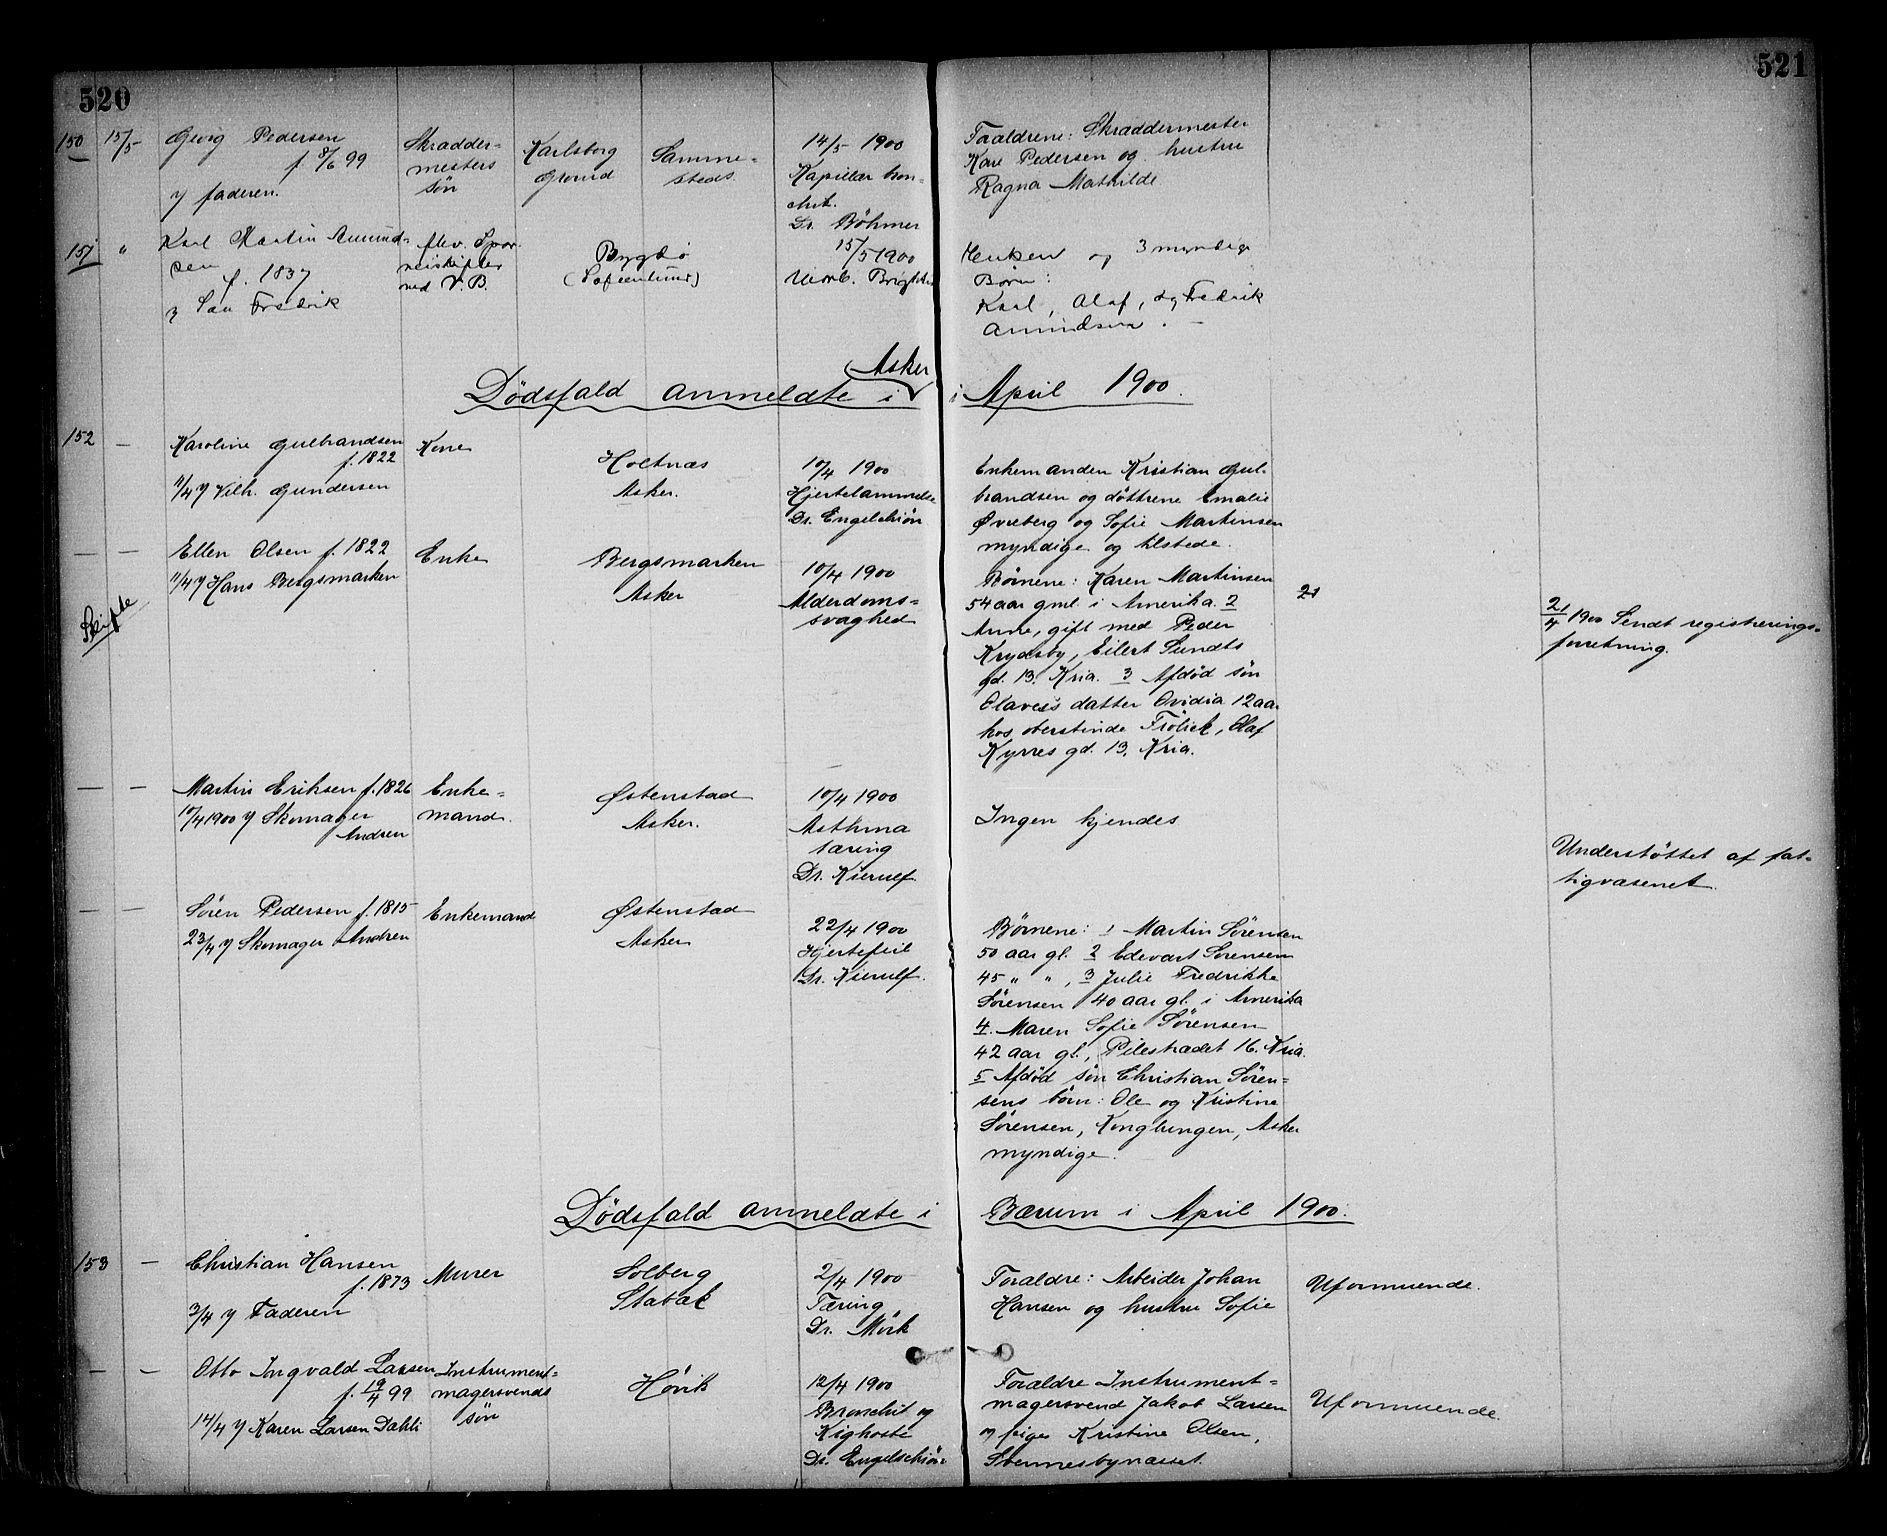 520
521
150 15/5 Georg Pedersen
f. 8/6 99
v/ faderen.
Skrædder-
mesters
søn
Karlsborg
Grund
Samme-
steds.
14/5 1900
Kapillær bron-
chit.
Dr. Bøhmer
Forældrene: Skræddermester
Karl Pedersen og hustru
Ragna Mathilde
151 " Karl Martin Amund-
sen f. 1837
v/ Søn Fredrik
ved V. B.
Bygdø
(Sofienlund)
15/5 1900
Enken og 3 myndige
Børn:
Karl, Olaf, og Fredrik
Amundsen. —
Dødsfald anmeldte i Asker i April 1900.
152 — Karoline Gulbrandsen
f. 1822
11/4 v/ Vilh. Gundersen
Kone
Holtnæs
Asker.
10/4 1900
Hjertelammelse
Dr. Engelschiøn
Enkemanden Kristian Gul-
brandsen og døttrene Emalie
Øvreberg og Sofie Martinsen
myndige og tilstede.
— — Ellen Olsen f. 1822
11/4 v/ Hans Bergsmarken
Skifte
Enke
Bergsmarken
Asker
10/4 1900
Alderdoms-
svaghed
Børnene: Karen Martinsen
54 aar gml. i Amerika. 2
Anne, gift med Peder
Krydsby, Eilert Sundts
gd. 13. Kria. 3 Afdød søn
Olaves's datter Ovidia 12 aar
hos oberstinde Frölich, Olaf
Kyrres gd. 13, Kria.
21
21/4 1900 Sendt registrerings-
forretning.
— — Martin Eriksen f. 1826
10/4 1900 v/ Skomager
Andren
Enke-
mand.
Østenstad
Asker.
10/4 1900
Asthma
tæring
Dr. Kierulf
Ingen kjendes
Understøttet af fat-
tigvæsenet.
— — Søren Pedersen f. 1815
23/4 v/ Skomager Andren
Enkemand
Østenstad
Asker
22/4 1900
Hjertefeil
Dr. Kierulf.
Børnene: 1 Martin Sørensen
50 aar gl. 2 Edevart Sørensen
45 " ", 3 Julie Fredrikke
Sørensen 40 aar gl. i Amerika
4. Maren Sofie Sørensen
42 aar gl., Pilestrædet 16. Kria.
5 Afdød søn Christian Søren-
sens børn: Ole og Kristine
Sørensen, Konglungen, Asker
myndige.
Dødsfald anmeldte i Bærum i April 1900.
153 — Christian Hansen
f. 1873
3/4 v/ Faderen
Murer
Solberg
Stabæk
2/4 1900
Tæring
Dr. Mørk
Forældre: Arbeider Johan
Hansen og hustru Sofie
Uformuende.
— — Otto Ingvald Larsen
f. 19/4 99
14/4 v/ Karen Larsen Dahli
Instrument-
magersvends
søn
Høvik
12/4 1900
Bronchit og
Kighoste
Dr. Engelschiøn
Forældre Instrument-
magersvend Jakob Larsen
og pige Kristine Olsen,
Uformuende.